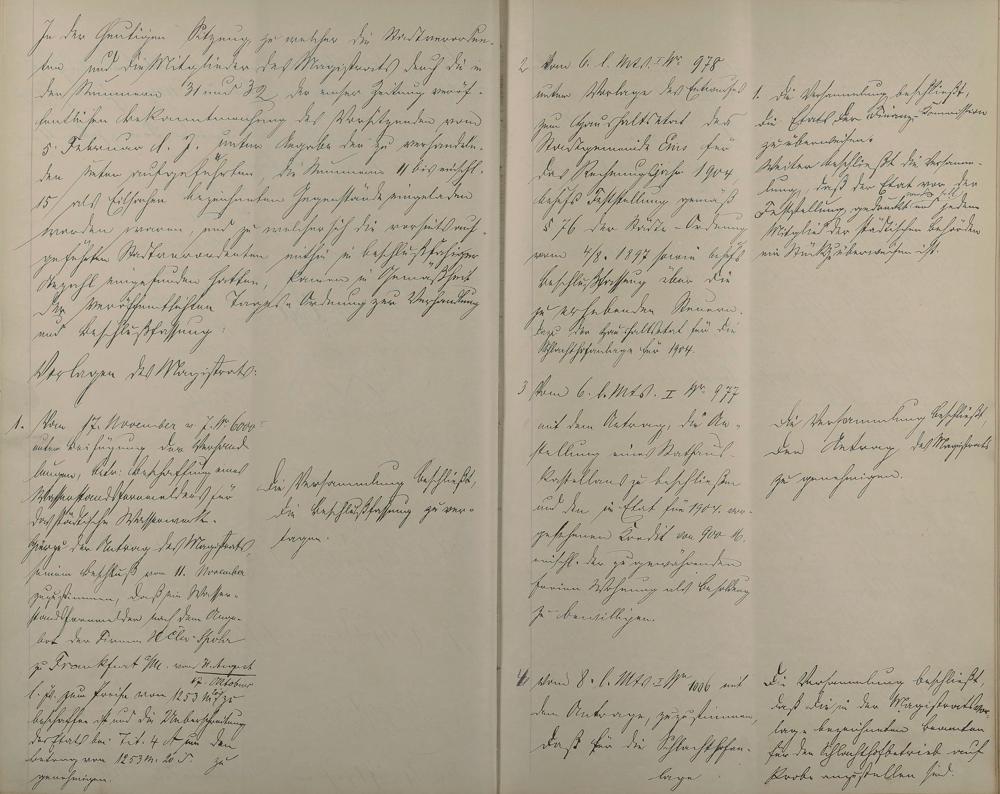 In der heutigen Sitzung, zu welcher die Stadtverordne-
ten und die Mitglieder des Magistrats durch die in
den Nummern 31 und 32 der Emser Zeitung veröf-
fentlichten Bekanntmachung des Vorsitzenden vom
5. Februar d. J. unter Angabe der zu verhandeln-
den unten aufgeführten, die Nummern 11 bis einschl.
15 als Eilsachen bezeichneten Gegenstände eingeladen
worden waren, und zu welcher sich die vorseits auf-
geführten Stadtverordneten mithin in beschlußfähiger
Anzahl eingefunden hatten, kamen in Gemäßheit
der veröffentlichten Tages-Ordnung zur Verhandlung
und Beschlußfassung:
Vorlagen des Magistrats:
1. Vom 17. November v. J. No 6000
unter Beifügung der Verhand
lungen, betr: Beschaffung eines
Wasserstandsfernmelders für
das städtische Wasserwerk.
Hierzu der Antrag des Magistrats,
seinem Beschluß vom 11. November
zuzustimmen, daß ein Wasser-
standsfernmelder nach dem Ange-
bot der Firma
zu Frankfurt a/M. vom 31. August
17. Oktober
l. Js. zum Preise von 1253 M 20
beschaffen ist und die Ueberschreitung
des Etats bei Tit. 4 A um den
Betrag von 1253 M. 20 d. zu
genehmigen.
Die Versammlung beschließt,
die Beschlußfassung zu ver-
tagen.
2 Vom 6. l. Mts. I No 978
unter Vorlage des Entwurfes
zum Haushaltsetat der
Stadtgemeinde Ems für
das Rechnungsjahr 1904
behufs Feststellung gemäß
§ 76 der Städte-Ordnung
vom 4/8. 1897 sowie behufs
Beschlußfassung über die
zu erhebenden Steuern.
Dazu der Haushaltsetat für die
Schlachthofanlage für 1904.
1. Die Versammlung beschließt,
die Etats der Finanz-Kommission
zu überweisen.
Weiter beschließt die Versamm-
lung, daß der Etat vor der
Feststellung gedruckt werden soll und jedem
Mitglied der städtischen Behörden
ein Stück zu überweisen ist.
3 Vom 6. l. Mts. I No 977
mit dem Antrag, die An-
stellung eines Rathaus-
Kastellans zu beschließen
und den im Etat für 1904 vor-
gesehenen Kredit von 900 M.
einschl. der zu gewährenden
freien Wohnung als Besoldung
zu bewilligen.
Die Versammlung beschließt,
den Antrag des Magistrats
zu genehmigen.
4 Vom 8. l. Mts I No 1006 mit
dem Antrage, zuzustimmen,
daß für die Schlachthofan-
lage
Die Versammlung beschließt,
daß die in der Magistratsvor-
lage bezeichneten Beamten
für den Schlachthofbetrieb auf
Probe anzustellen sind.